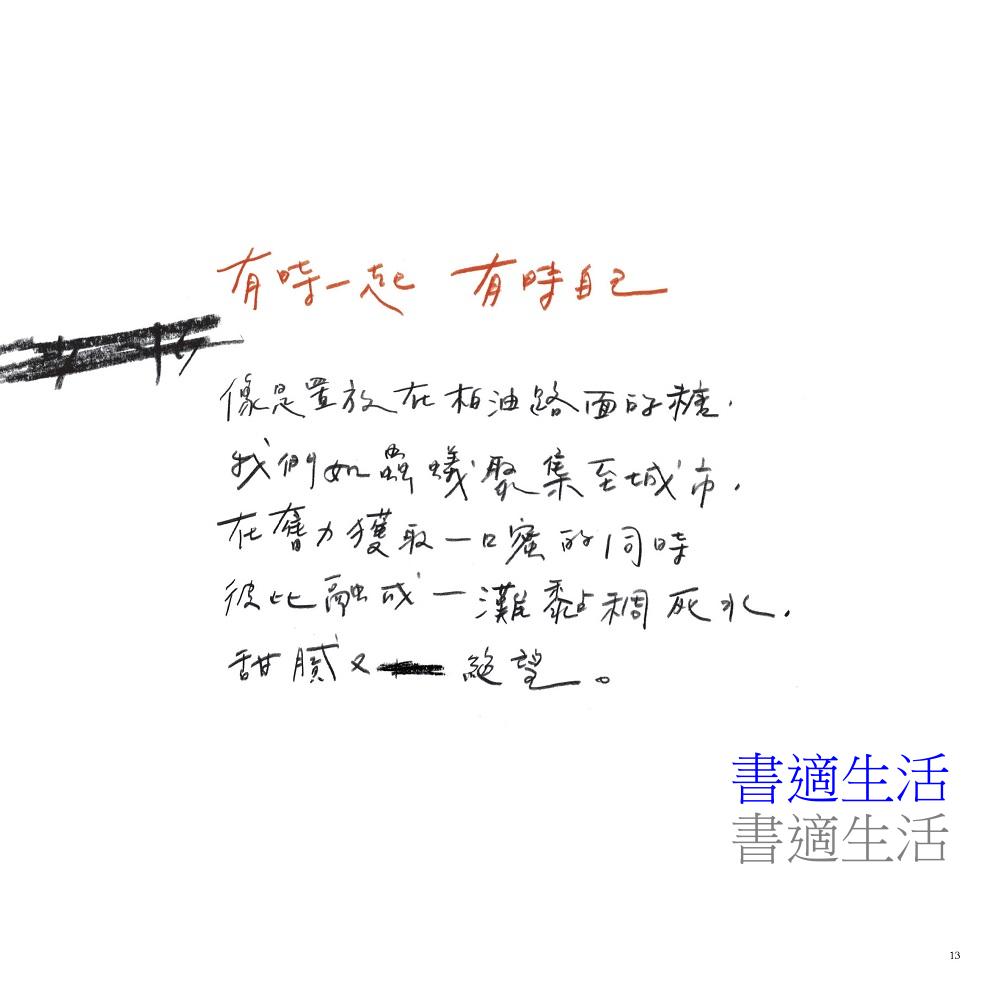 有時一起 有時自己
像是置放在柏油路面的糖,
我們如蟲蟻聚集至城市,
在奮力獲取一口蜜的同時
彼此融成一灘黏稠死水,
甜膩又絕望。
書適生活
書適生活
13